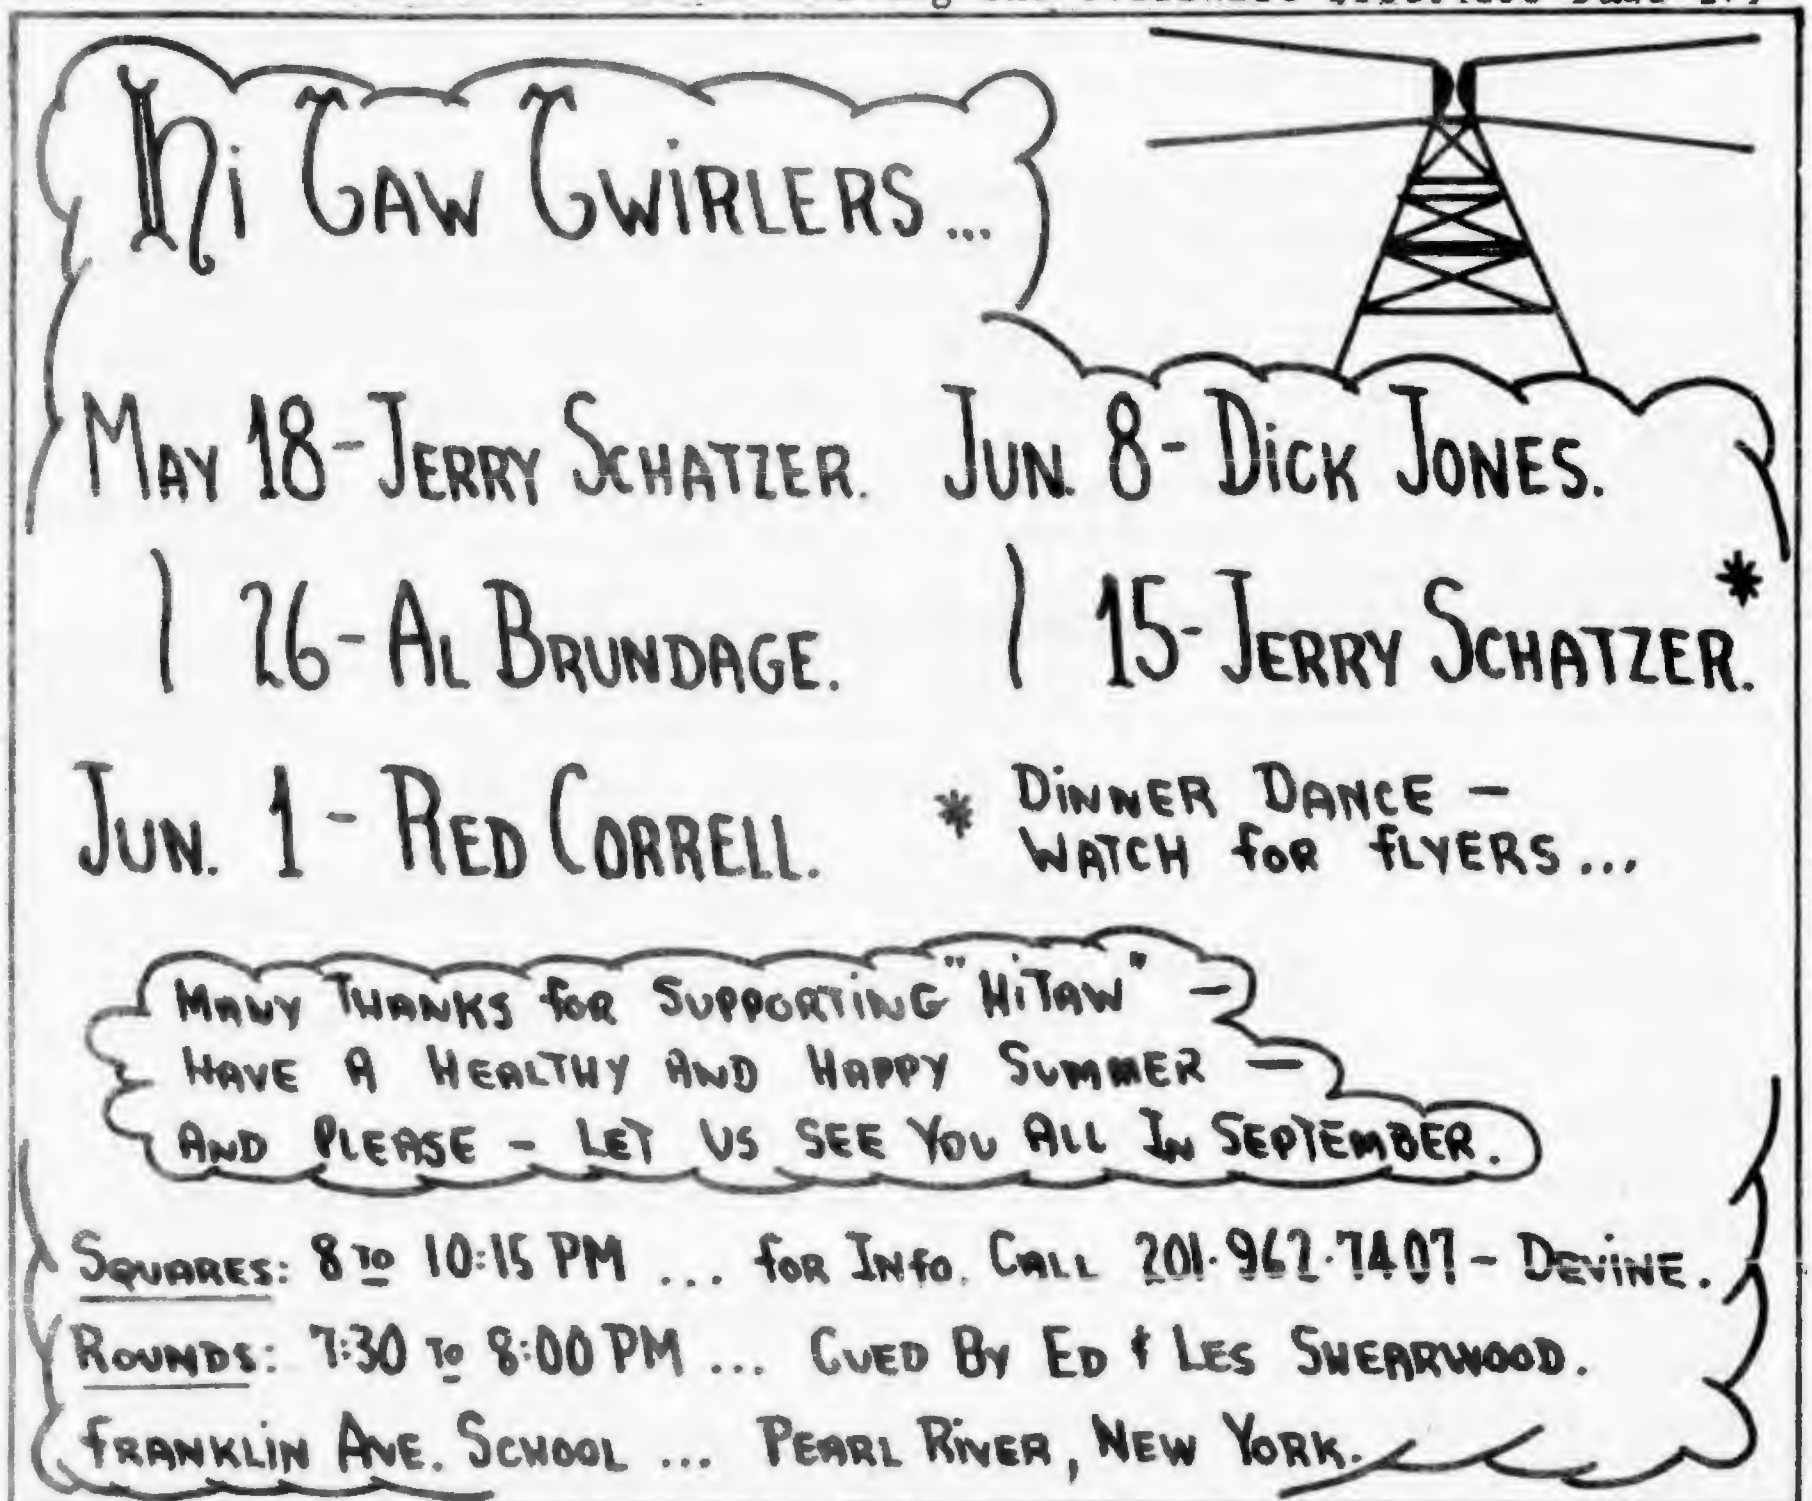 Hi TAW TWiRLERS...
MAY 18-JERRY SCHATZER.
26-AL BRUNDAGE.
JUN. 1-RED CORRELL.
JUN. 8-DiCK JONES.
15-JERRY SCHATZER.*
* DiNNER DANCE -
WATCH foR fLYERS...
MANY THANKS foR SUPPORTiNG "HiTAW" -
HAVE A HEALTHY AND HAPPY SUMMER -
AND PLEASE - LET US SEE YOU ALL IN SEPTEMBER.
SQUARES: 8 TO 10:15 PM ... foR INfo. CALL 201-962-7407- DEViNE.
ROUNDS: 7:30 TO 8:00 PM ... CUED BY ED & LES SHEARWOOD.
fRANKLiN AVE. SCHOOL ... PEARL RiVER, NEW YORK.